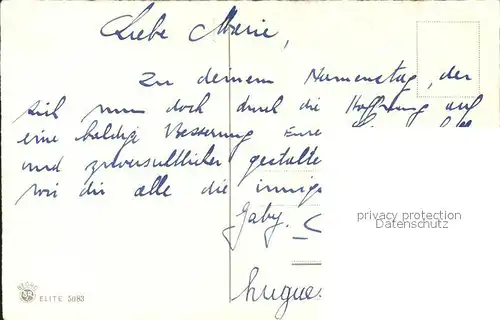 Liebe Marie,
Zu deinem Namenstag, der
sich nun doch durch die Hoffnung auf
eine baldige Besserung Eure
und zuversichtlicher gestalte
wir dir alle die innig
Gaby.
privacy protection
Datenschutz
hugue
BEORO
ELITE 5083